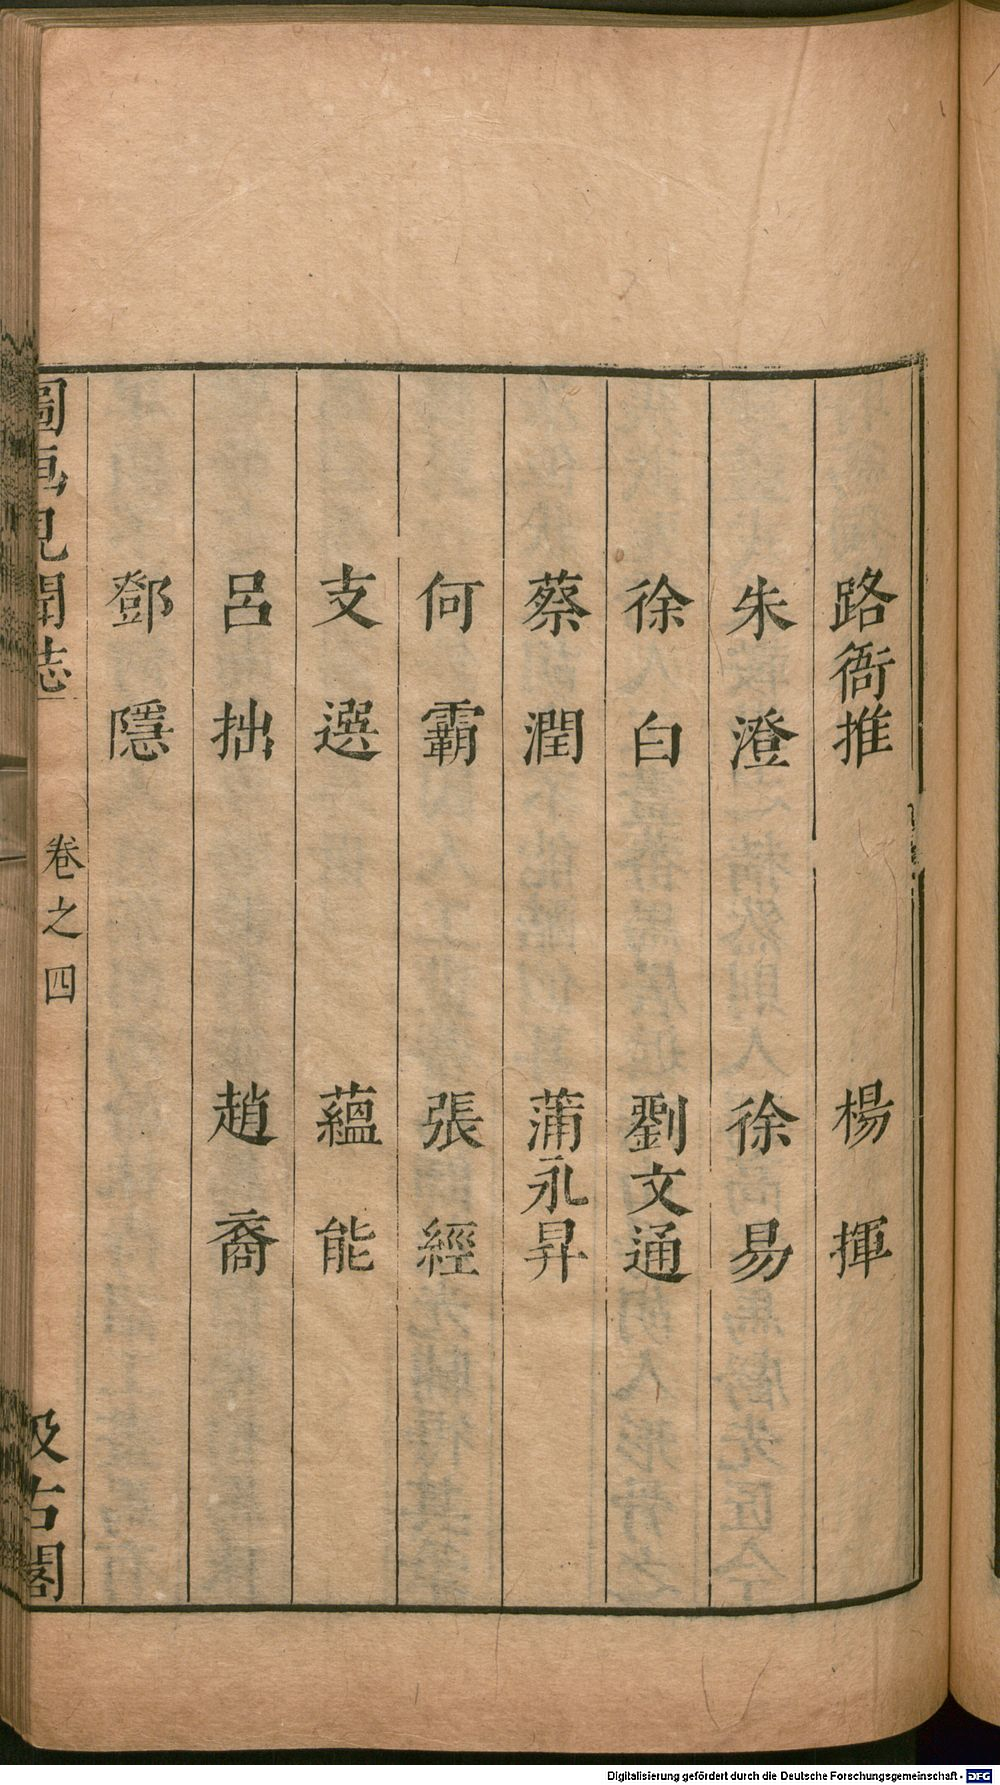 路衙推 楊揮
朱澄 徐易
徐白 劉文通
蔡潤 蒲永昇
何霸 張經
支選 蘊能
呂拙 趙裔
鄧隱
圖畫見聞志 卷之四 汲古閣
Digitalisierung gefördert durch die Deutsche Forschungsgemeinschaft - DFG